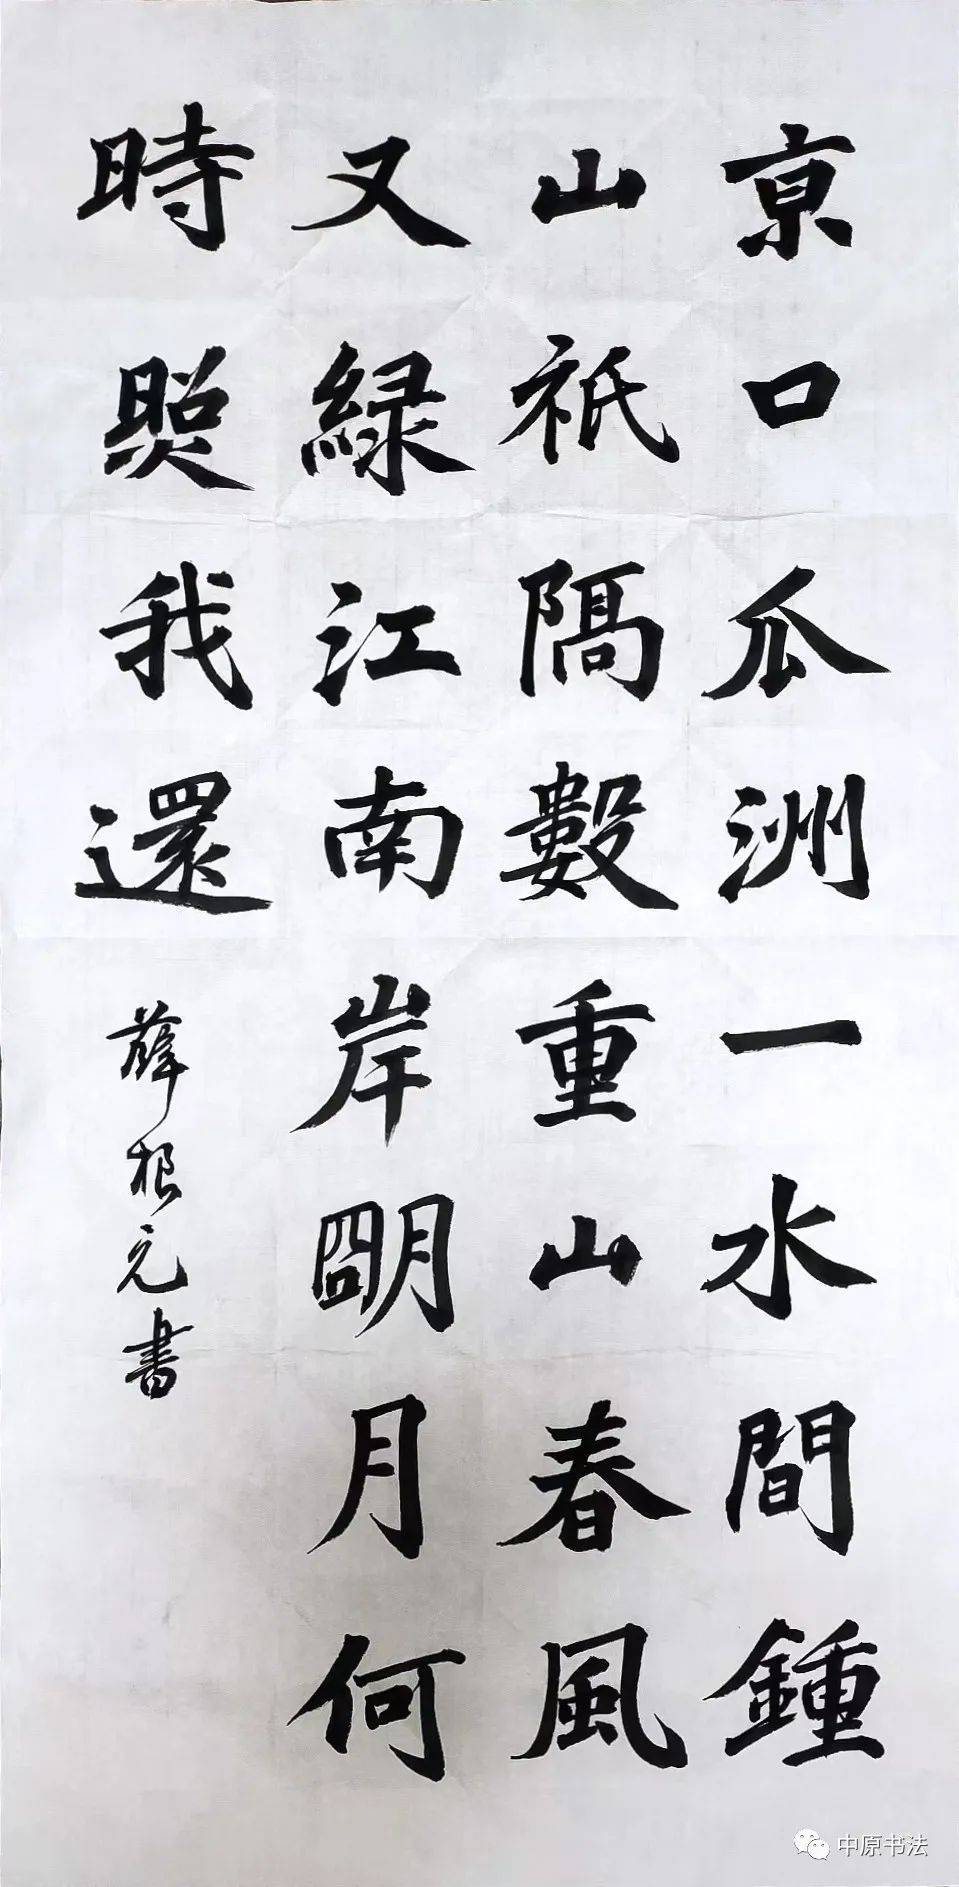 京口瓜洲一水間鍾
山祇隔數重山春風
又緑江南岸明月何
時照我還
薛根元書
中原书法